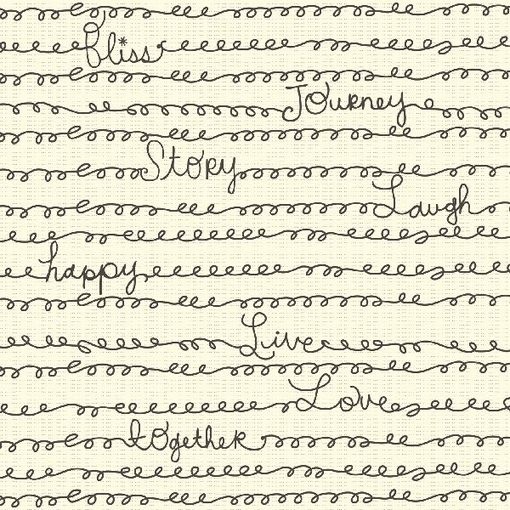 bliss
Journey
Story
Laugh
happy
Live
Love
together